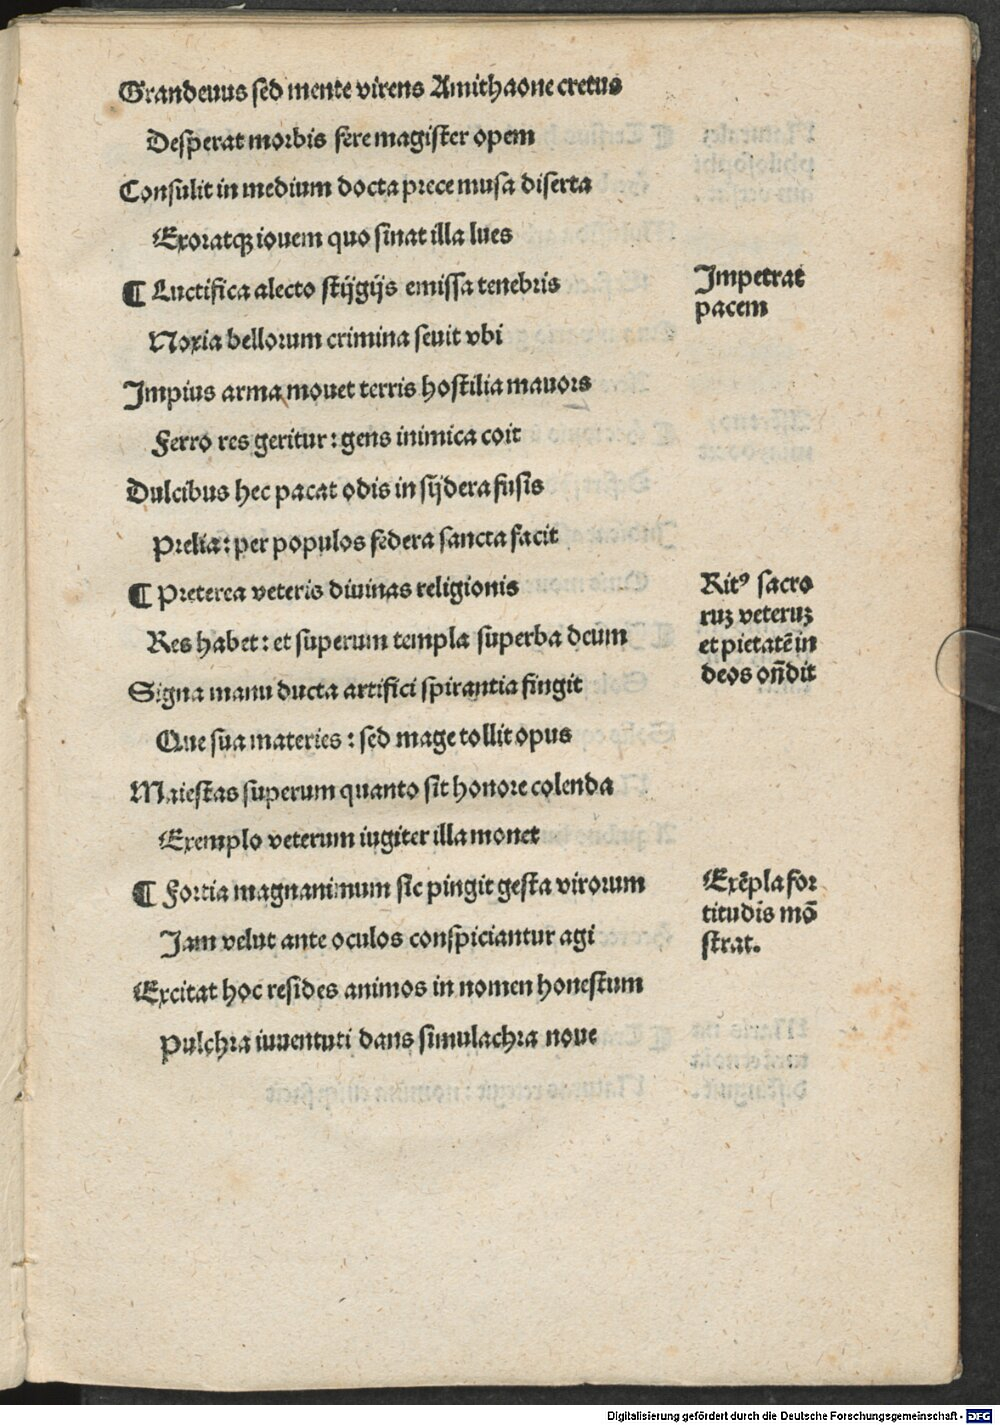 Grandeuus sed mente virens Amithaone cretus
Desperat morbis fere magister opem
Consulit in medium docta prece musa diserta
Exoratqꝫ iouem quo sinat illa lues
¶ Luctifica alecto stijgijs emissa tenebris
Noxia bellorum crimina seuit vbi
Impius arma mouet terris hostilia mauors
Ferro res geritur: gens inimica coit
Dulcibus hec pacat odis in sijdera fusis
Prelia: per populos federa sancta facit
¶ Preterea veteris diuinas religionis
Res habet: et superum templa superba deum
Signa manu ducta artifici spirantia fingit
Que sua materies: sed mage tollit opus
Maiestas superum quanto sit honore colenda
Exemplo veterum iugiter illa monet
¶ Fortia magnanimum sic pingit gesta virorum
Jam velut ante oculos conspiciantur agi
Excitat hoc resides animos in nomen honestum
Pulchra iuuentuti dans simulachra noue
Impetrat
pacem
Ritꝰ sacro
ruꝫ veteruꝫ
et pietatē in
deos on̄dit
Exēpla for
titudīs mō
strat.
Digitalisierung gefördert durch die Deutsche Forschungsgemeinschaft - DFG